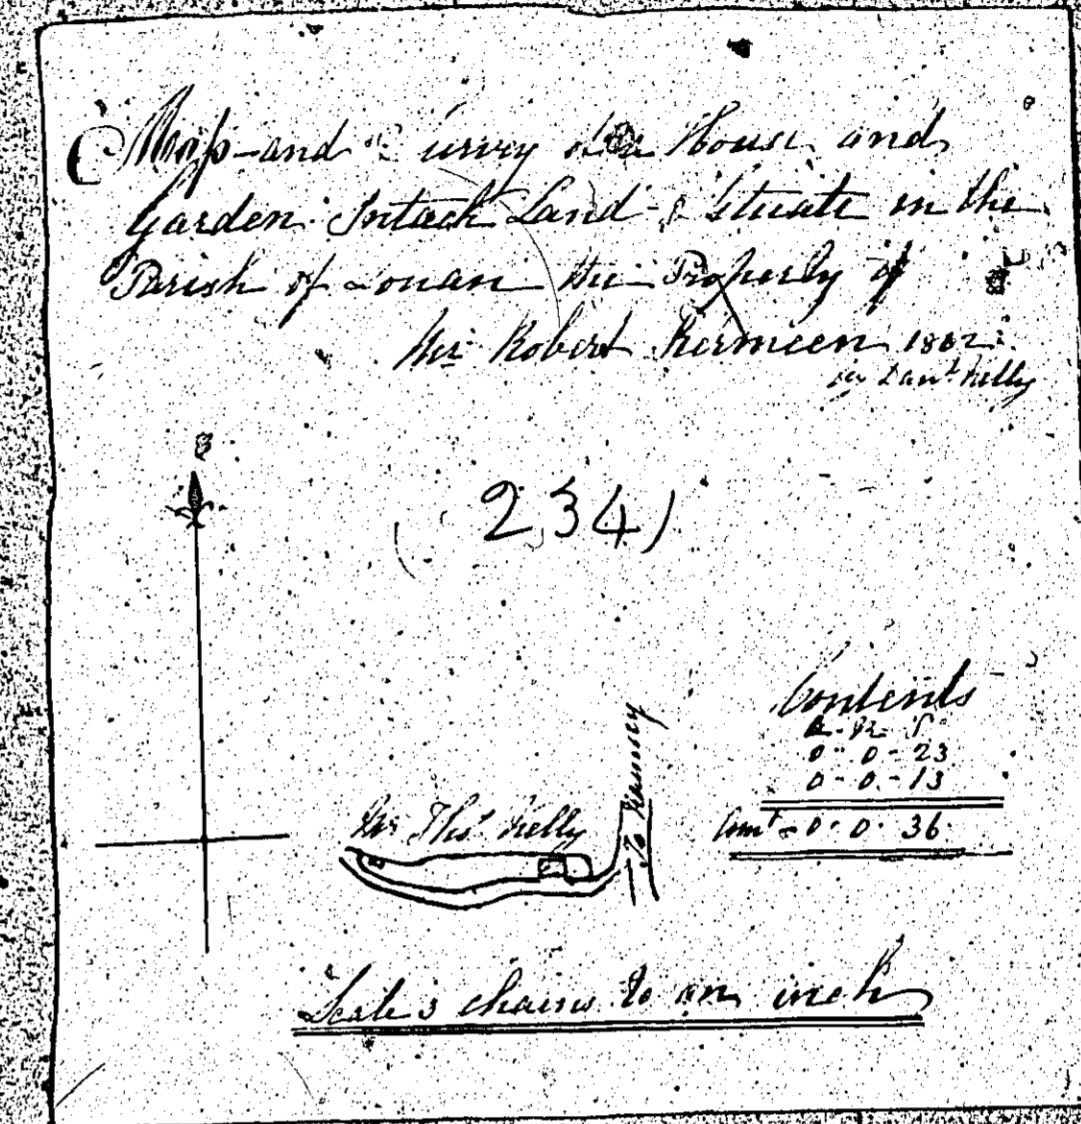 Map and Survey of a House and
Garden Intack Land Situate in the
Parish of Lonan the Property of
Mr Robert Kermeen 1862
by Danl Kelly
(234)
Contents
A. R. P.
0 - 0 - 23
0 - 0 - 13
0 - 0 - 36
To Ramsey
Mr Thos Kelly
Scale 3 chains to an inch